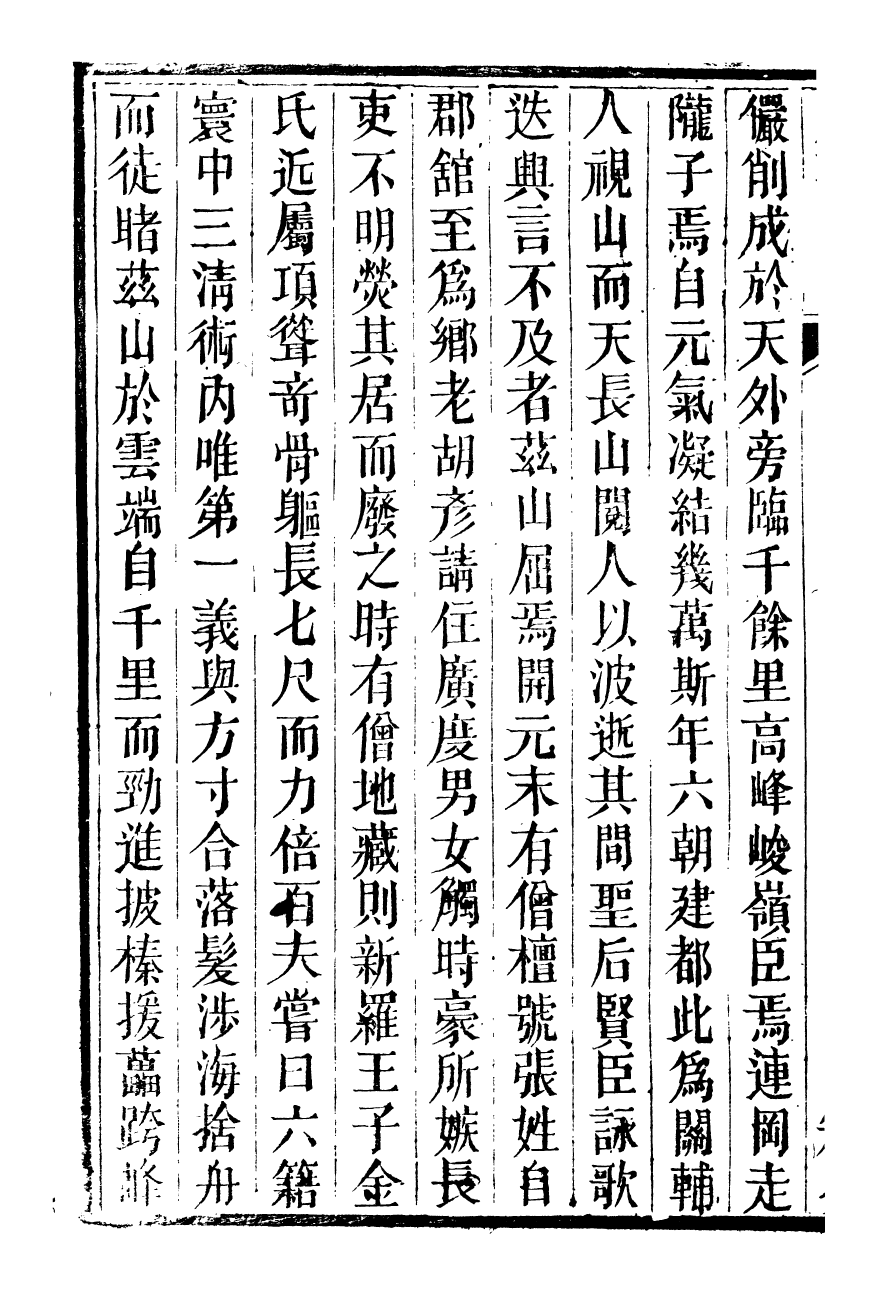 儼削成於天外旁臨千餘里高峰峻嶺臣焉連岡走
隴子焉自元氣凝結幾萬斯年六朝建都此爲關輔
人視山而天長山閱人以波逝其間聖后賢臣詠歌
迭興言不及者茲山屈焉開元末有僧檀號張姓自
郡舘至爲鄉老胡彥請住廣度男女觸時豪所嫉長
吏不明熒其居而廢之時有僧地藏則新羅王子金
氏近屬項聳竒骨軀長七尺而力倍百夫嘗曰六籍
寰中三清術内唯第一義與方寸合落髮涉海捨舟
而徒睹茲山於雲端自千里而勁進披榛援藟跨峰